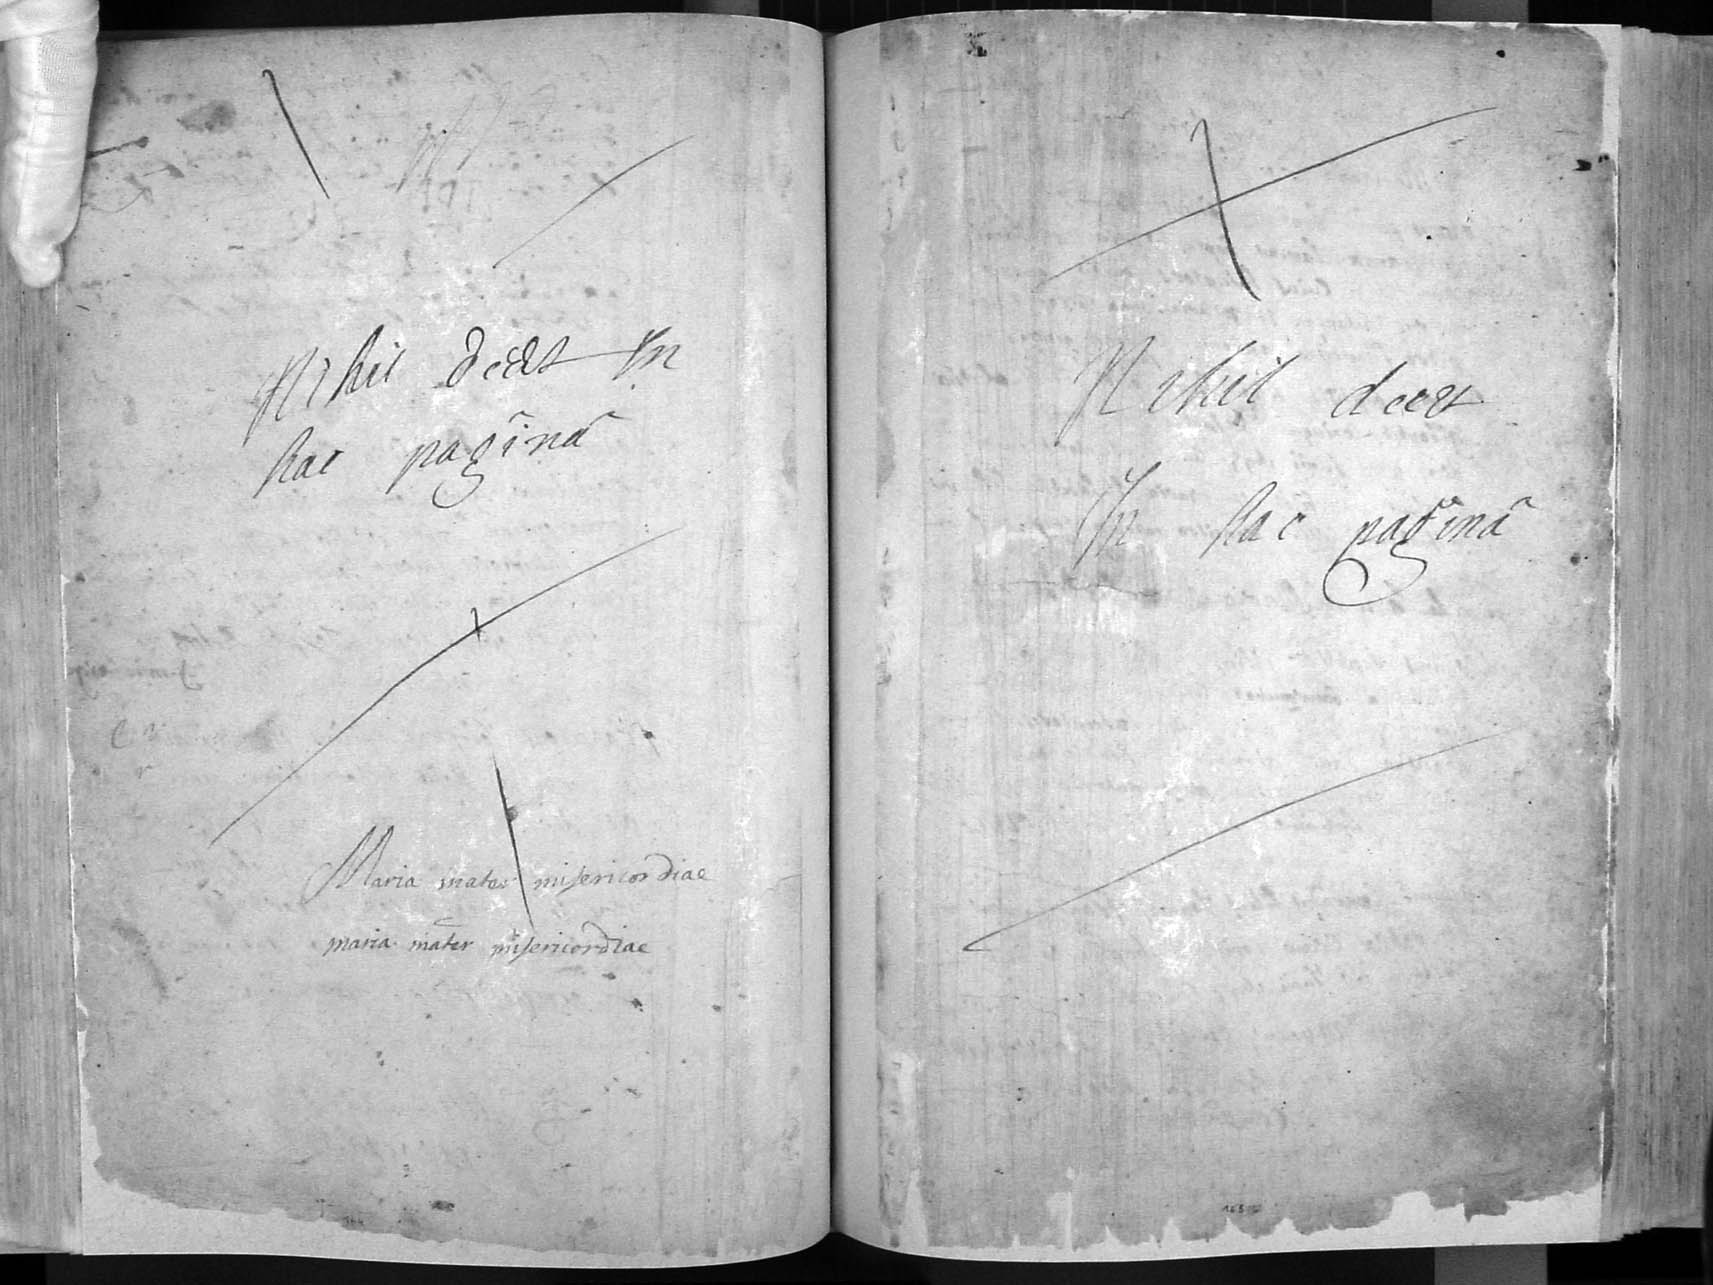 Nihil deest In
hac paginâ
Maria mater misericordiae
maria mater misericordiae
Nihil deest
In hac paginâ